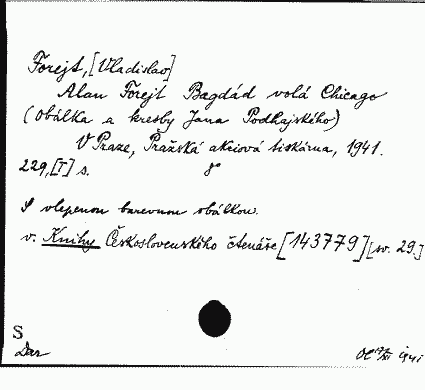 Forejt, [Vladislav]
Alan Forejt Bagdád volá Chicago
(Obálka a kresby Jana Podhajského)
V Praze, Pražská akciová tiskárna, 1941.
229, [I] s. 8°
S vlepenou barevnou obálkou.
v. Knihy Československého čtenáře [143779] [sv. 29.]
S
Dar
1941